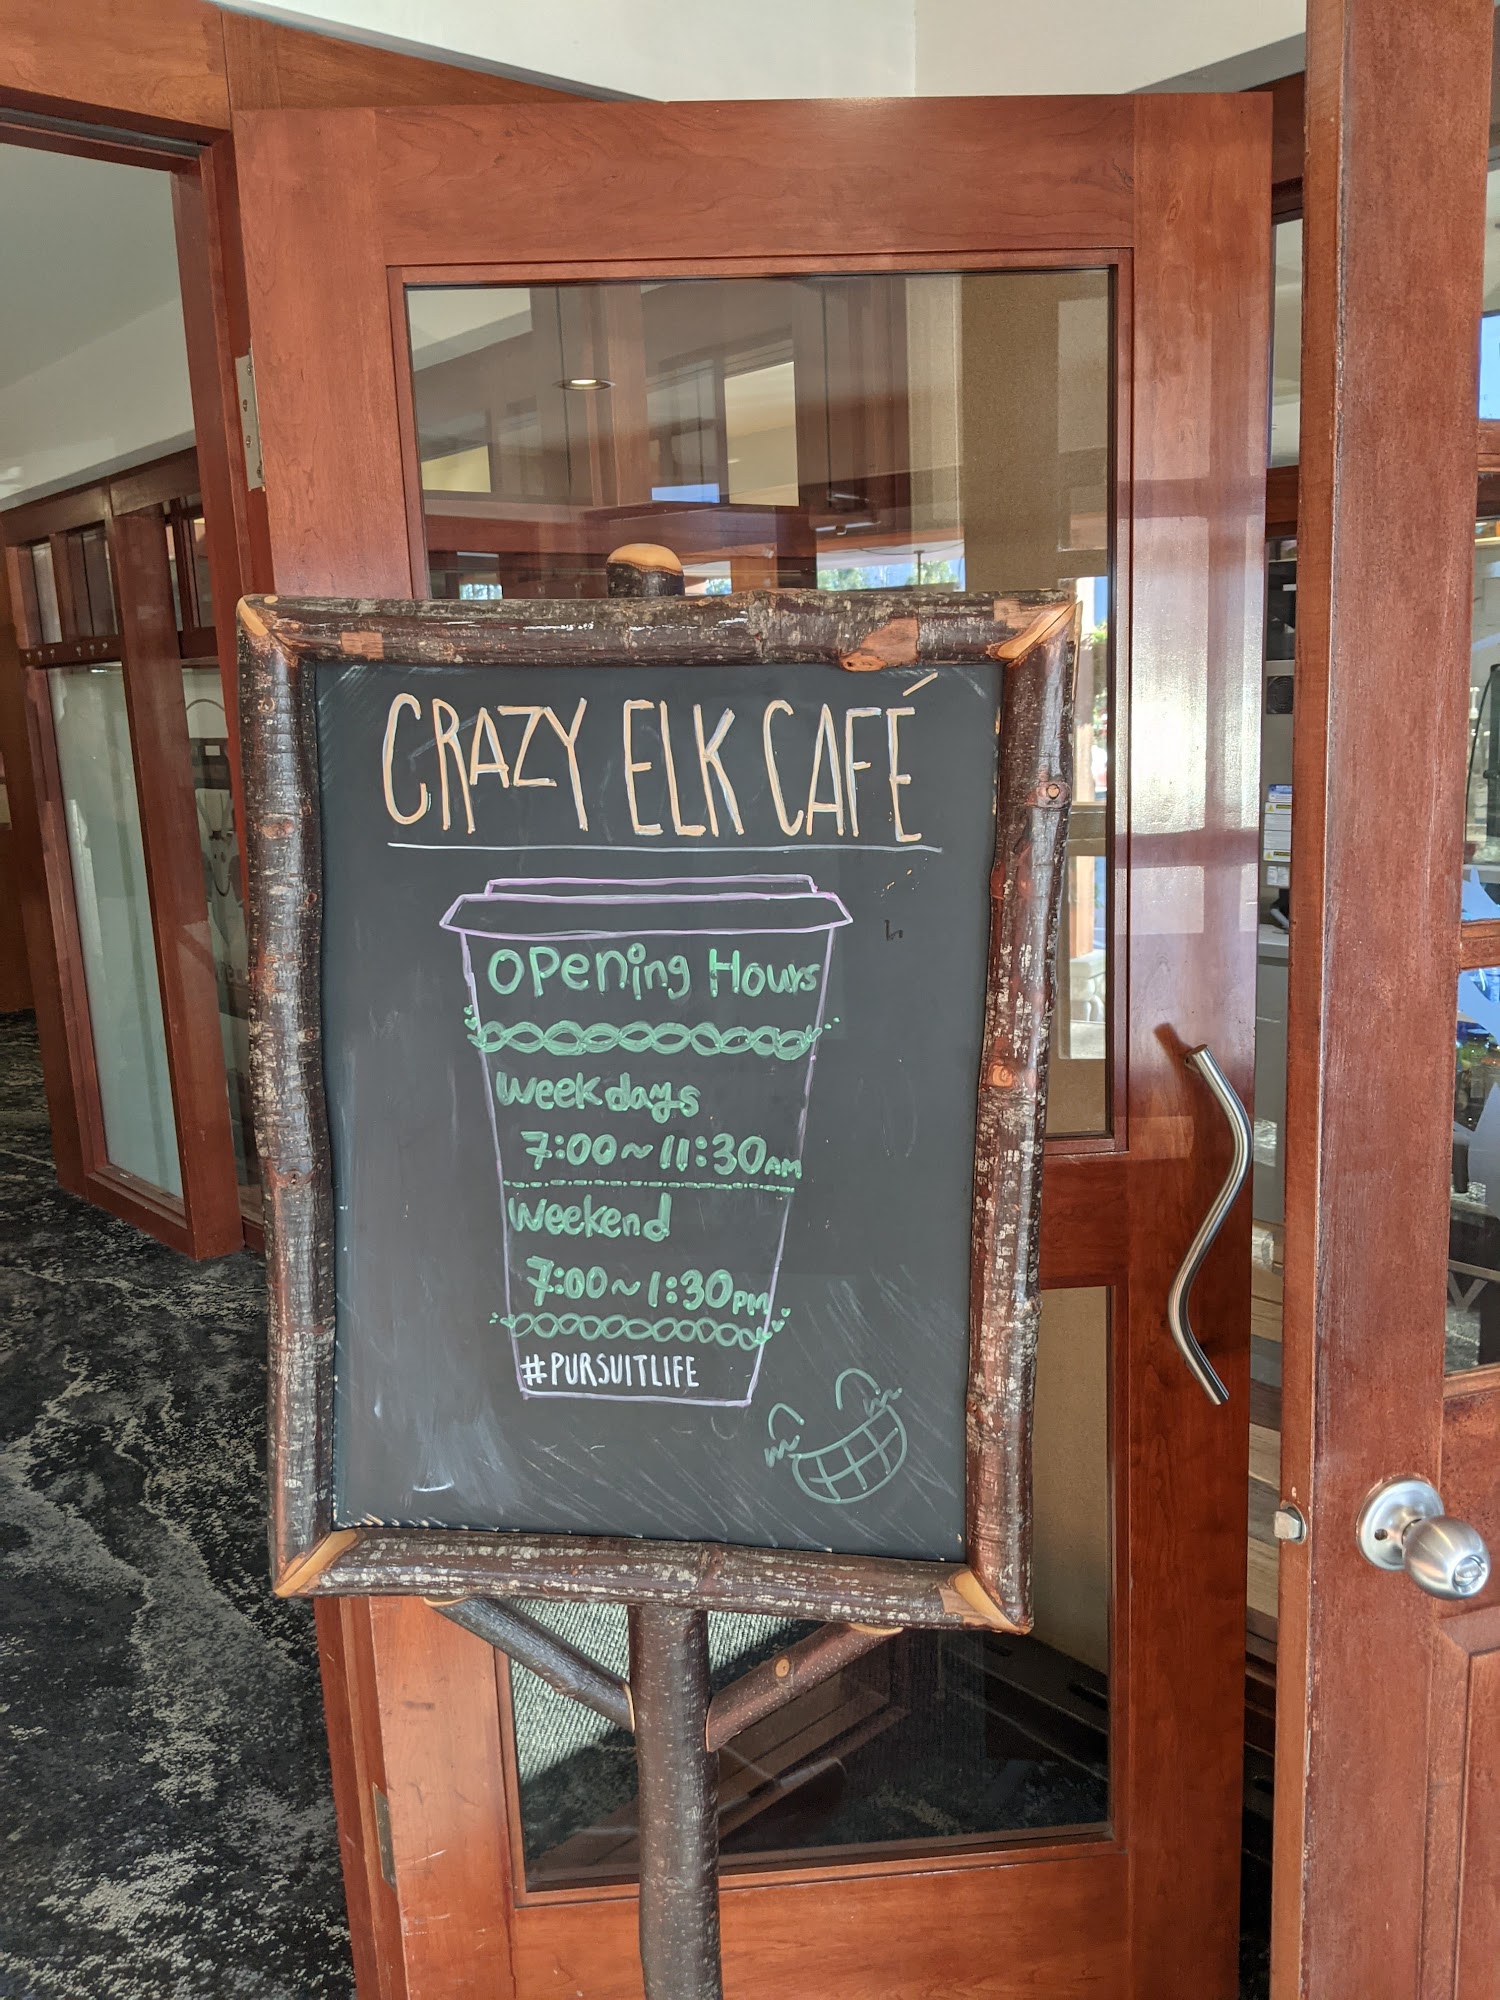 CRAZY ELK CAFÉ
Opening Hours
Weekdays
7:00~11:30AM
Weekend
7:00~1:30PM
#PURSUITLIFE